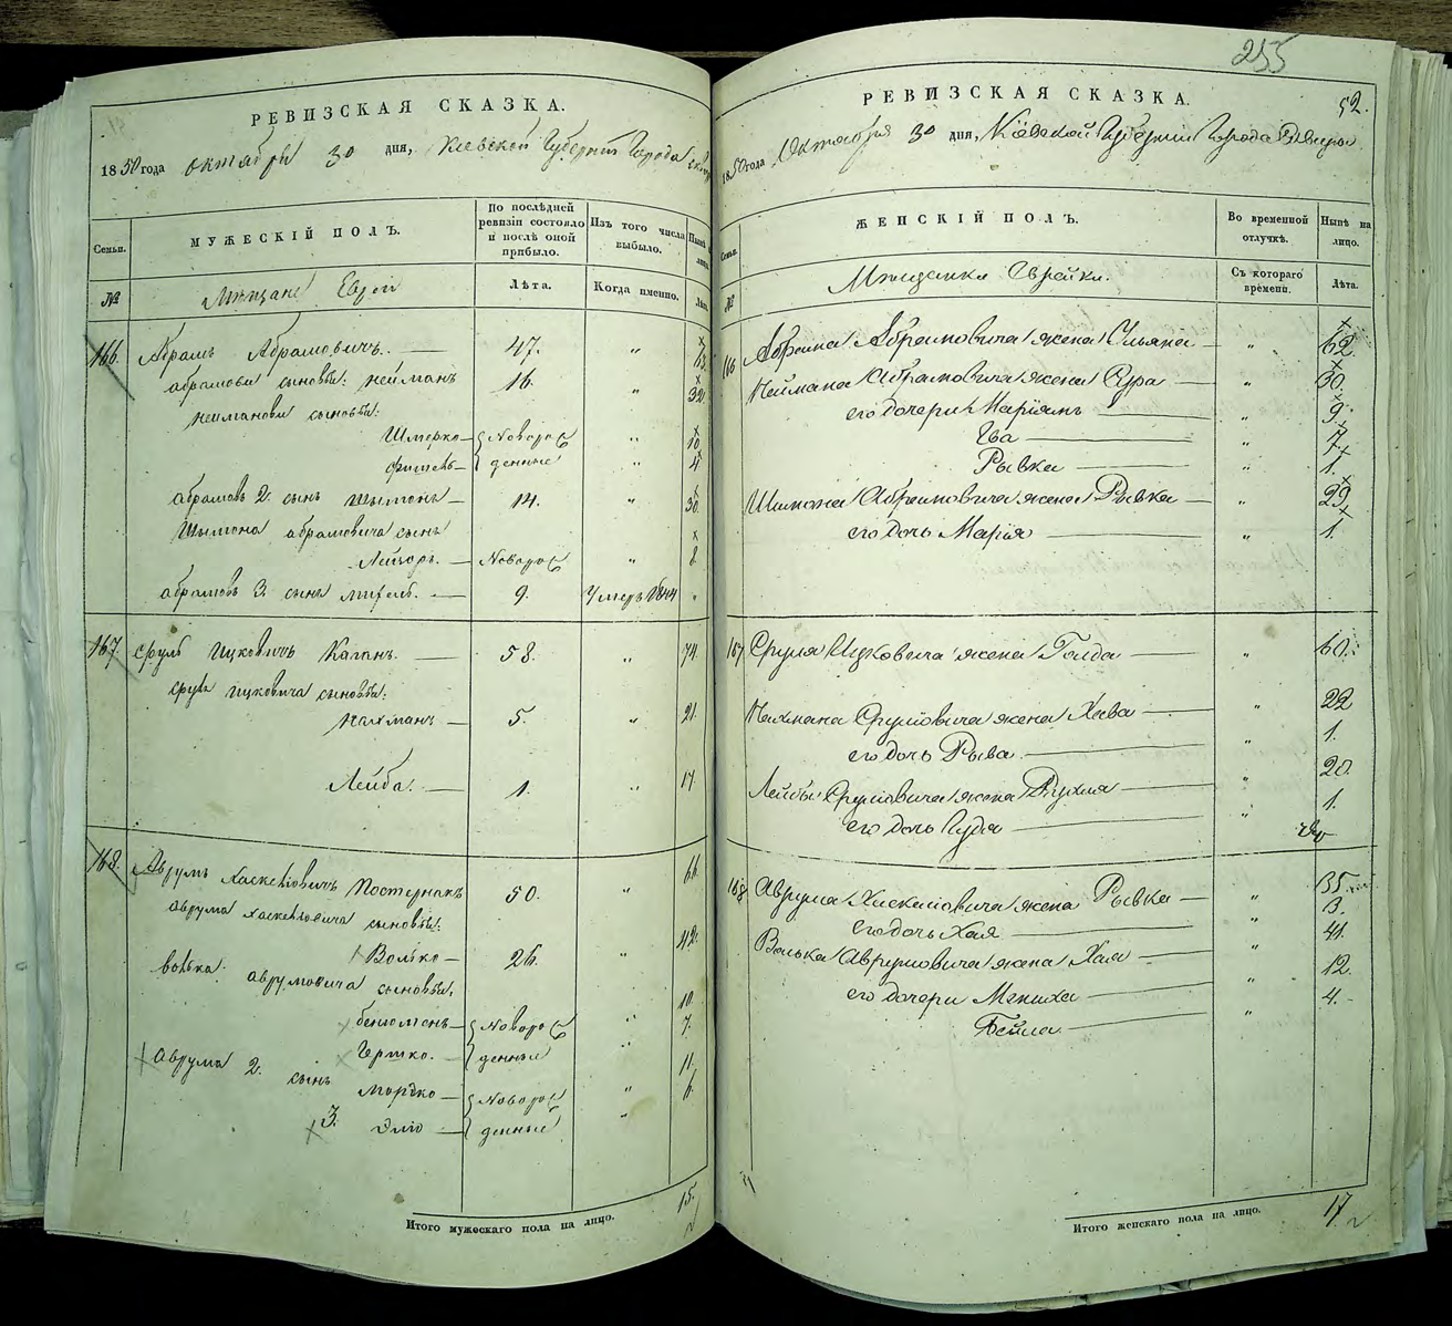 РЕВИЗСКАЯ СКАЗКА.
1850 года октября 30 дня, Киевской Губернии Города
Семьи. МУЖЕСКІЙ ПОЛЪ. По послѣдней ревизіи состояло и послѣ оной прибыло. Изъ того числа выбыло. Нынѣ на лицо.
№ Мѣщане Евреи Лѣта. Когда именно. Лѣта.
166. Абрамъ Абрамовичъ. — 47. „ 63.
абрамовы сыновья: Нейманъ 16. „ 32.
Неймановы сыновья:
Шмерко — Новорож „ 10.
Фишель — денные „ 4.
абрамовъ 2. сынъ Шымонъ — 14. „ 30.
Шымона абрамовича сынъ
Лейзоръ. — Новорож „ 8.
абрамовъ 3. сынъ 9. Умеръ 1844 „
167. Сруль Ицковичъ Каганъ. — 58. „ 74.
Сруля Ицковича сыновья:
Нахманъ — 5. „ 21.
Лейба. — 1. „ 17.
168. Аврумъ Хаскелiовичъ Постернакъ 50. „ 66.
аврума Хаскелiовича сыновья:
Волько — 26. „ 42.
волька аврумовича сыновья:
бенюменъ — Новорож „ 10.
Гершко. — денные „ 7.
аврума 2. сынъ Мордко — Новорож „ 11.
3. Элiо — денные „ 6.
Итого мужескаго пола на лицо. 15.
255
52.
РЕВИЗСКАЯ СКАЗКА.
1850 года Октября 30 дня, Кіевской Губерніи Города Сквиры
Семьи. ЖЕНСКІЙ ПОЛЪ. Во временной отлучкѣ. Нынѣ на лицо.
№ Мѣщанки Еврейки. Съ котораго времени. Лѣта.
166 Абрама Абрамовича жена Ульяна — „ 62.
Неймана Абрамовича жена Сура — „ 30.
его дочери Маріямъ — „ 9.
Ева — „ 7.
Рывка — „ 1.
Шимона Абрамовича жена Рывка — „ 29.
его дочь Марія — „ 1.
167 Сруля Ицковича жена Голда — „ 60.
Нахмана Срулiовича жена Хава — „ 22
его дочь Рыва — „ 1.
Лейбы Срулiовича жена Рухля — „ 20.
его дочь Гуда — „ 1.
168 Аврума Хаскелiовича жена Рывка — „ 35.
его дочь Хая — „ 3.
Волька Аврумовича жена Хая — „ 41.
его дочери Мениха — „ 12.
Бейла — „ 4.
Итого женскаго пола на лицо. 17